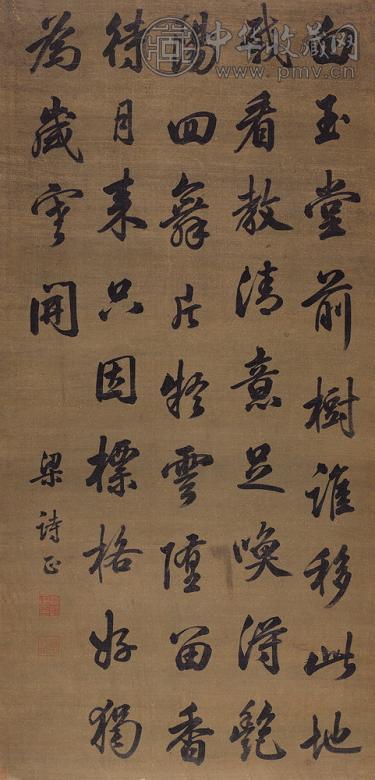 白玉堂前樹誰移此地
栽看教清意足喚得艷
陽回舞片疑雲墮留香
待月来只因標格好獨
為歲寒開
梁詩正
中华收藏网
www.pmv.cn